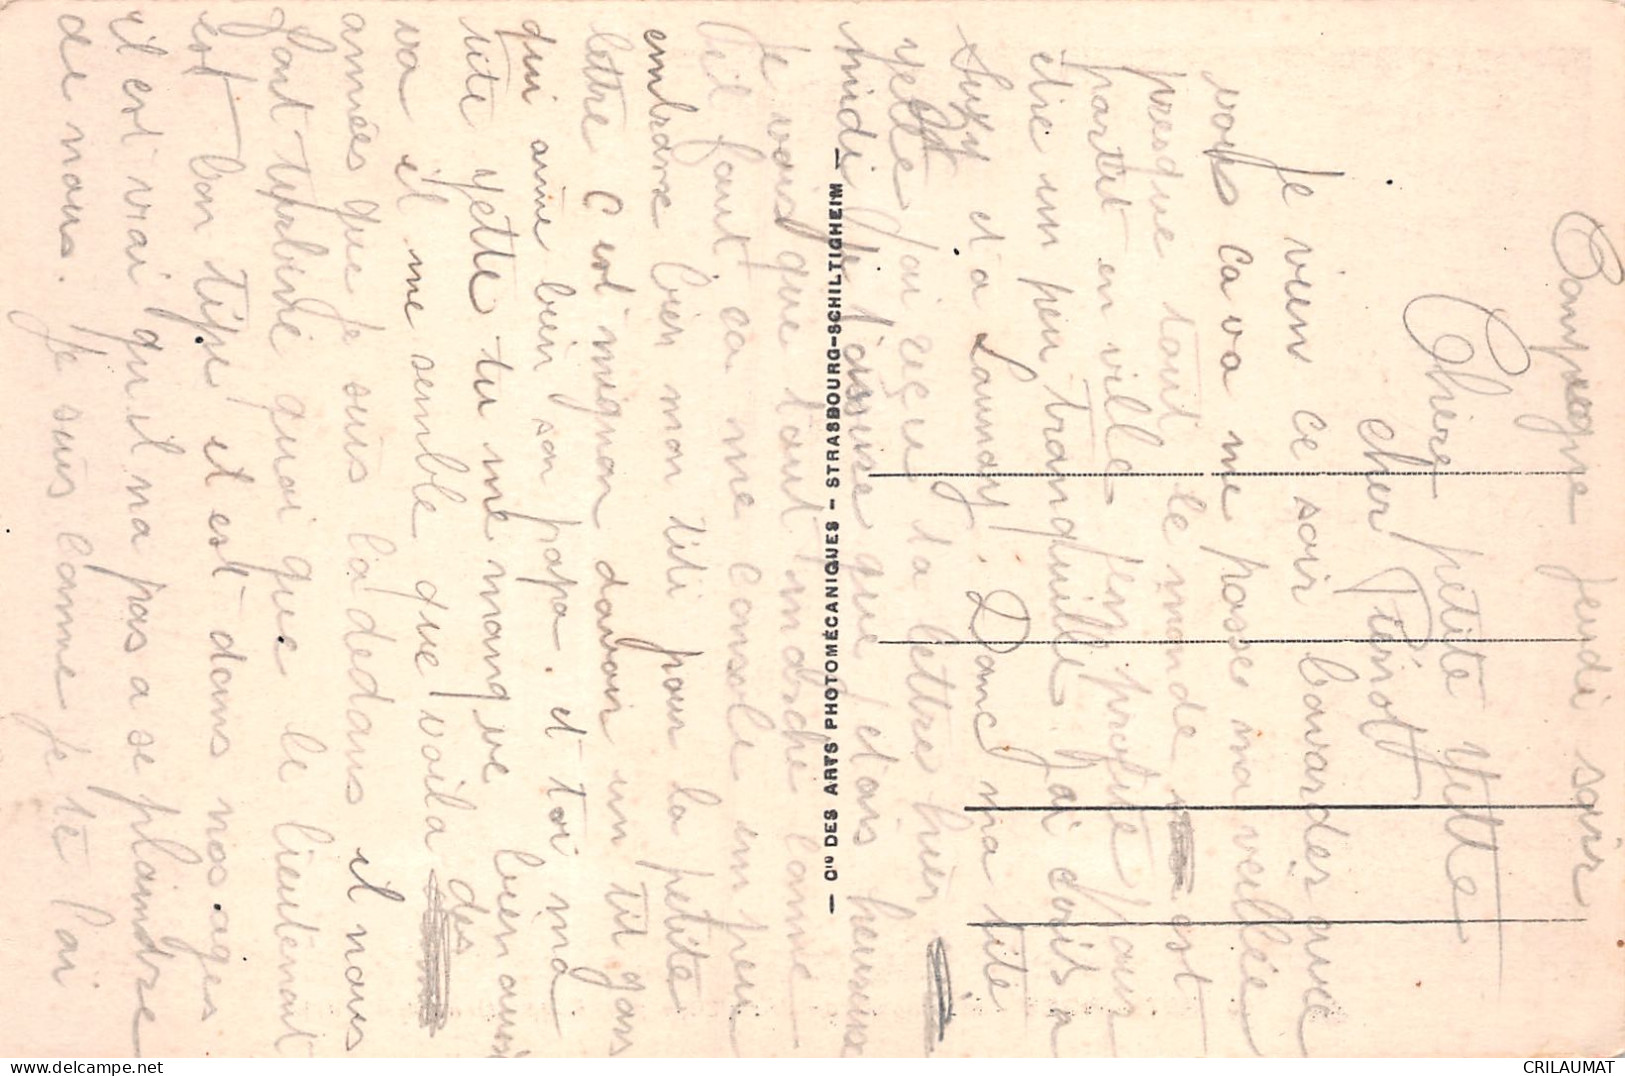 Compiegne jeudi soir
Chère petite Yette
cher Piénot
Je vien ce soir bavarder avec
vous ca va me passer ma veillée
presque tout le monde est
partit en ville j'en profite pour
etre un peu tranquille. J'ai écrit a
Suzy et a Launay. Donc ma tite
yette j'ai reçu ta lettre hier
midi je t'assure que j'etais heureuse
Je vois que tout marche comme
il faut ca me console un peu
embrasse bien mon titi pour la petite
lettre c est mignon davoir un tit gars
qui aime bien son papa. et toi ma
tite yette tu me manque bien aussi
va il me semble que voila des
années que je suis la dedans il nous
font turbiné quoi que le lieutenant
est bon type et est dans nos ages
il est vrai qu il na pas a se plaindre
de nous. Je suis comme je te l'ai
— Cie DES ARTS PHOTOMÉCANIQUES - STRASBOURG-SCHILTIGHEIM —
CRILAUMAT